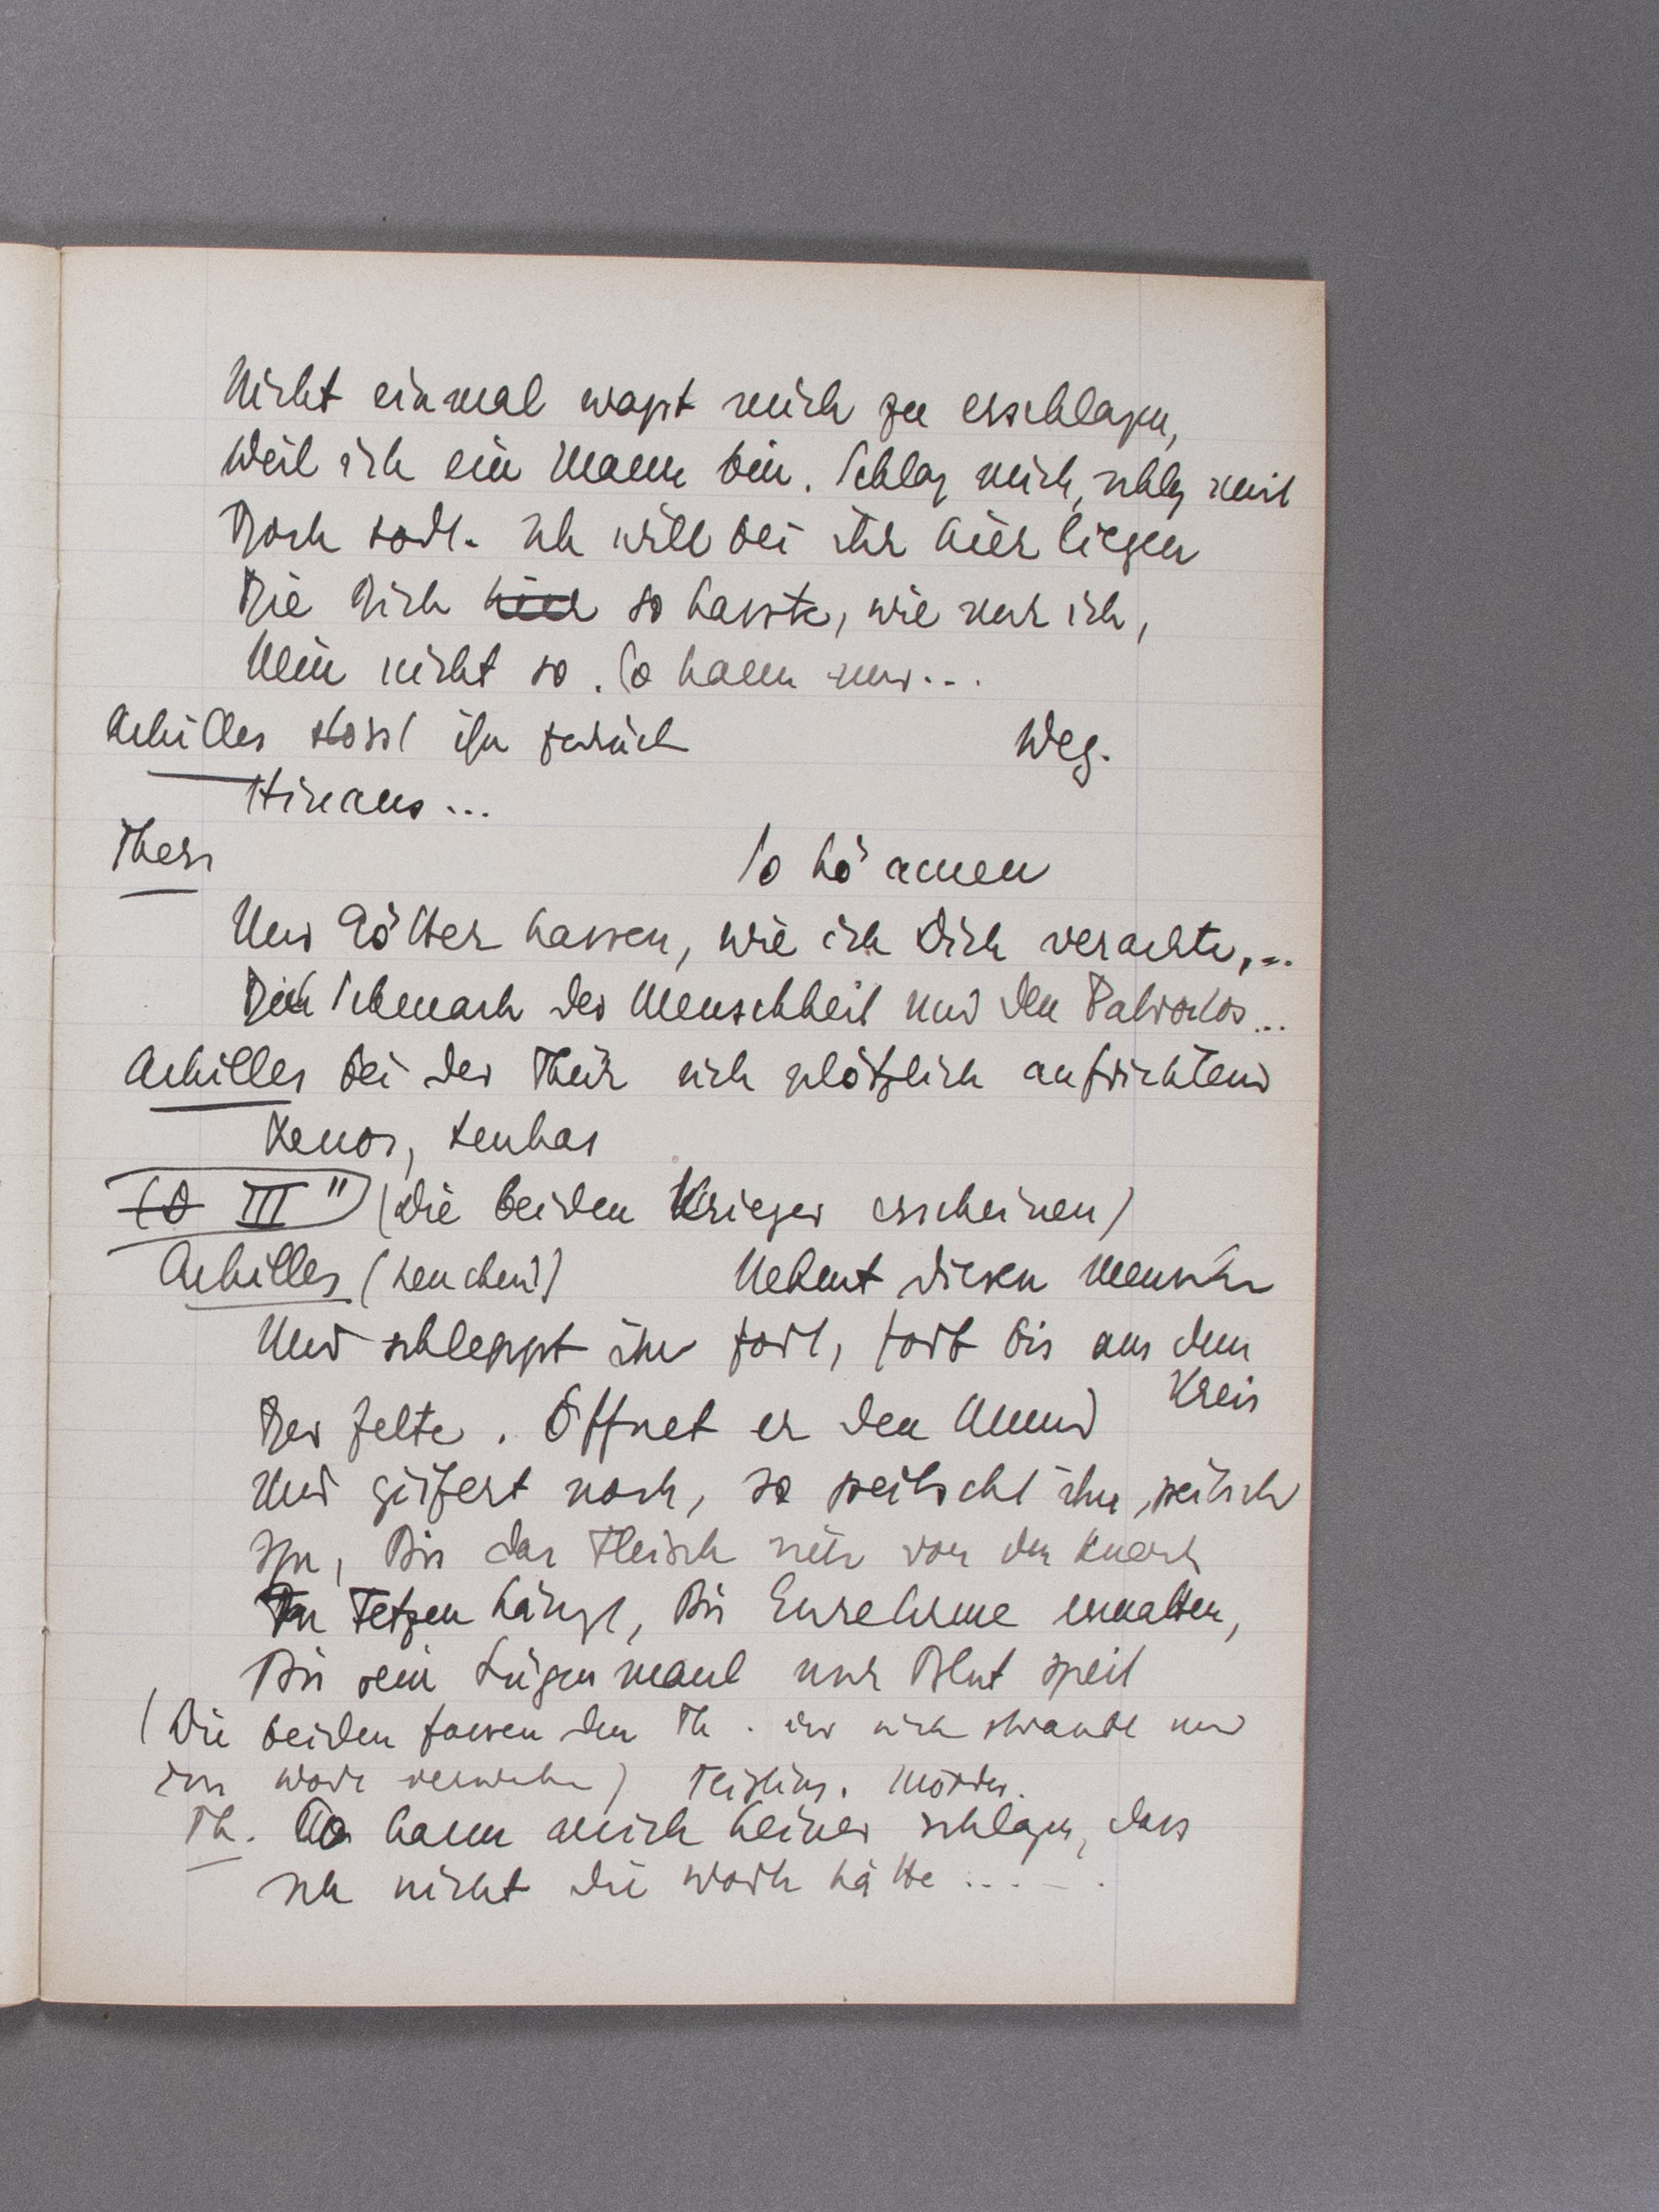 Nicht einmal wagst mich zu erschlagen,
Weil ich ein Mann bin. Schlag mich, schlag mich
Doch todt. Ich will bei ihr hier liegen
Die Dich hier so hasste, wie nur ich,
Nein nicht so. So kann nur...
Achilles stosst ihn zurück Weg.
Hinaus...
Thers So können
Nur Götter hassen, wie ich Dich verachte,...
Dich Schmach der Menschheit und den Patroklos...
Achilles bei der Thür sich plötzlich aufrichtend
Xenos,
III" (die beiden Krieger erscheinen)
Achilles (keuchend) Nehmt diesen Menschen
Und schleppt ihn fort, fort bis aus dem
Kreis
Der Zelte. Öffnet er den Mund
Und geifert noch, so peitscht ihn, peitscht
Ihn, Bis das Fleisch nur von den Knochen
In Fetzen hängt, Bis Eure Arme erkalten,
Bis sein Lügenmaul nur Blut speit
(Die beiden fassen den Th. der sich sträubt und
Feigling. Mörder.
Th. So kann mich keiner schlagen, dass
Ich nicht die Worte hätte.....